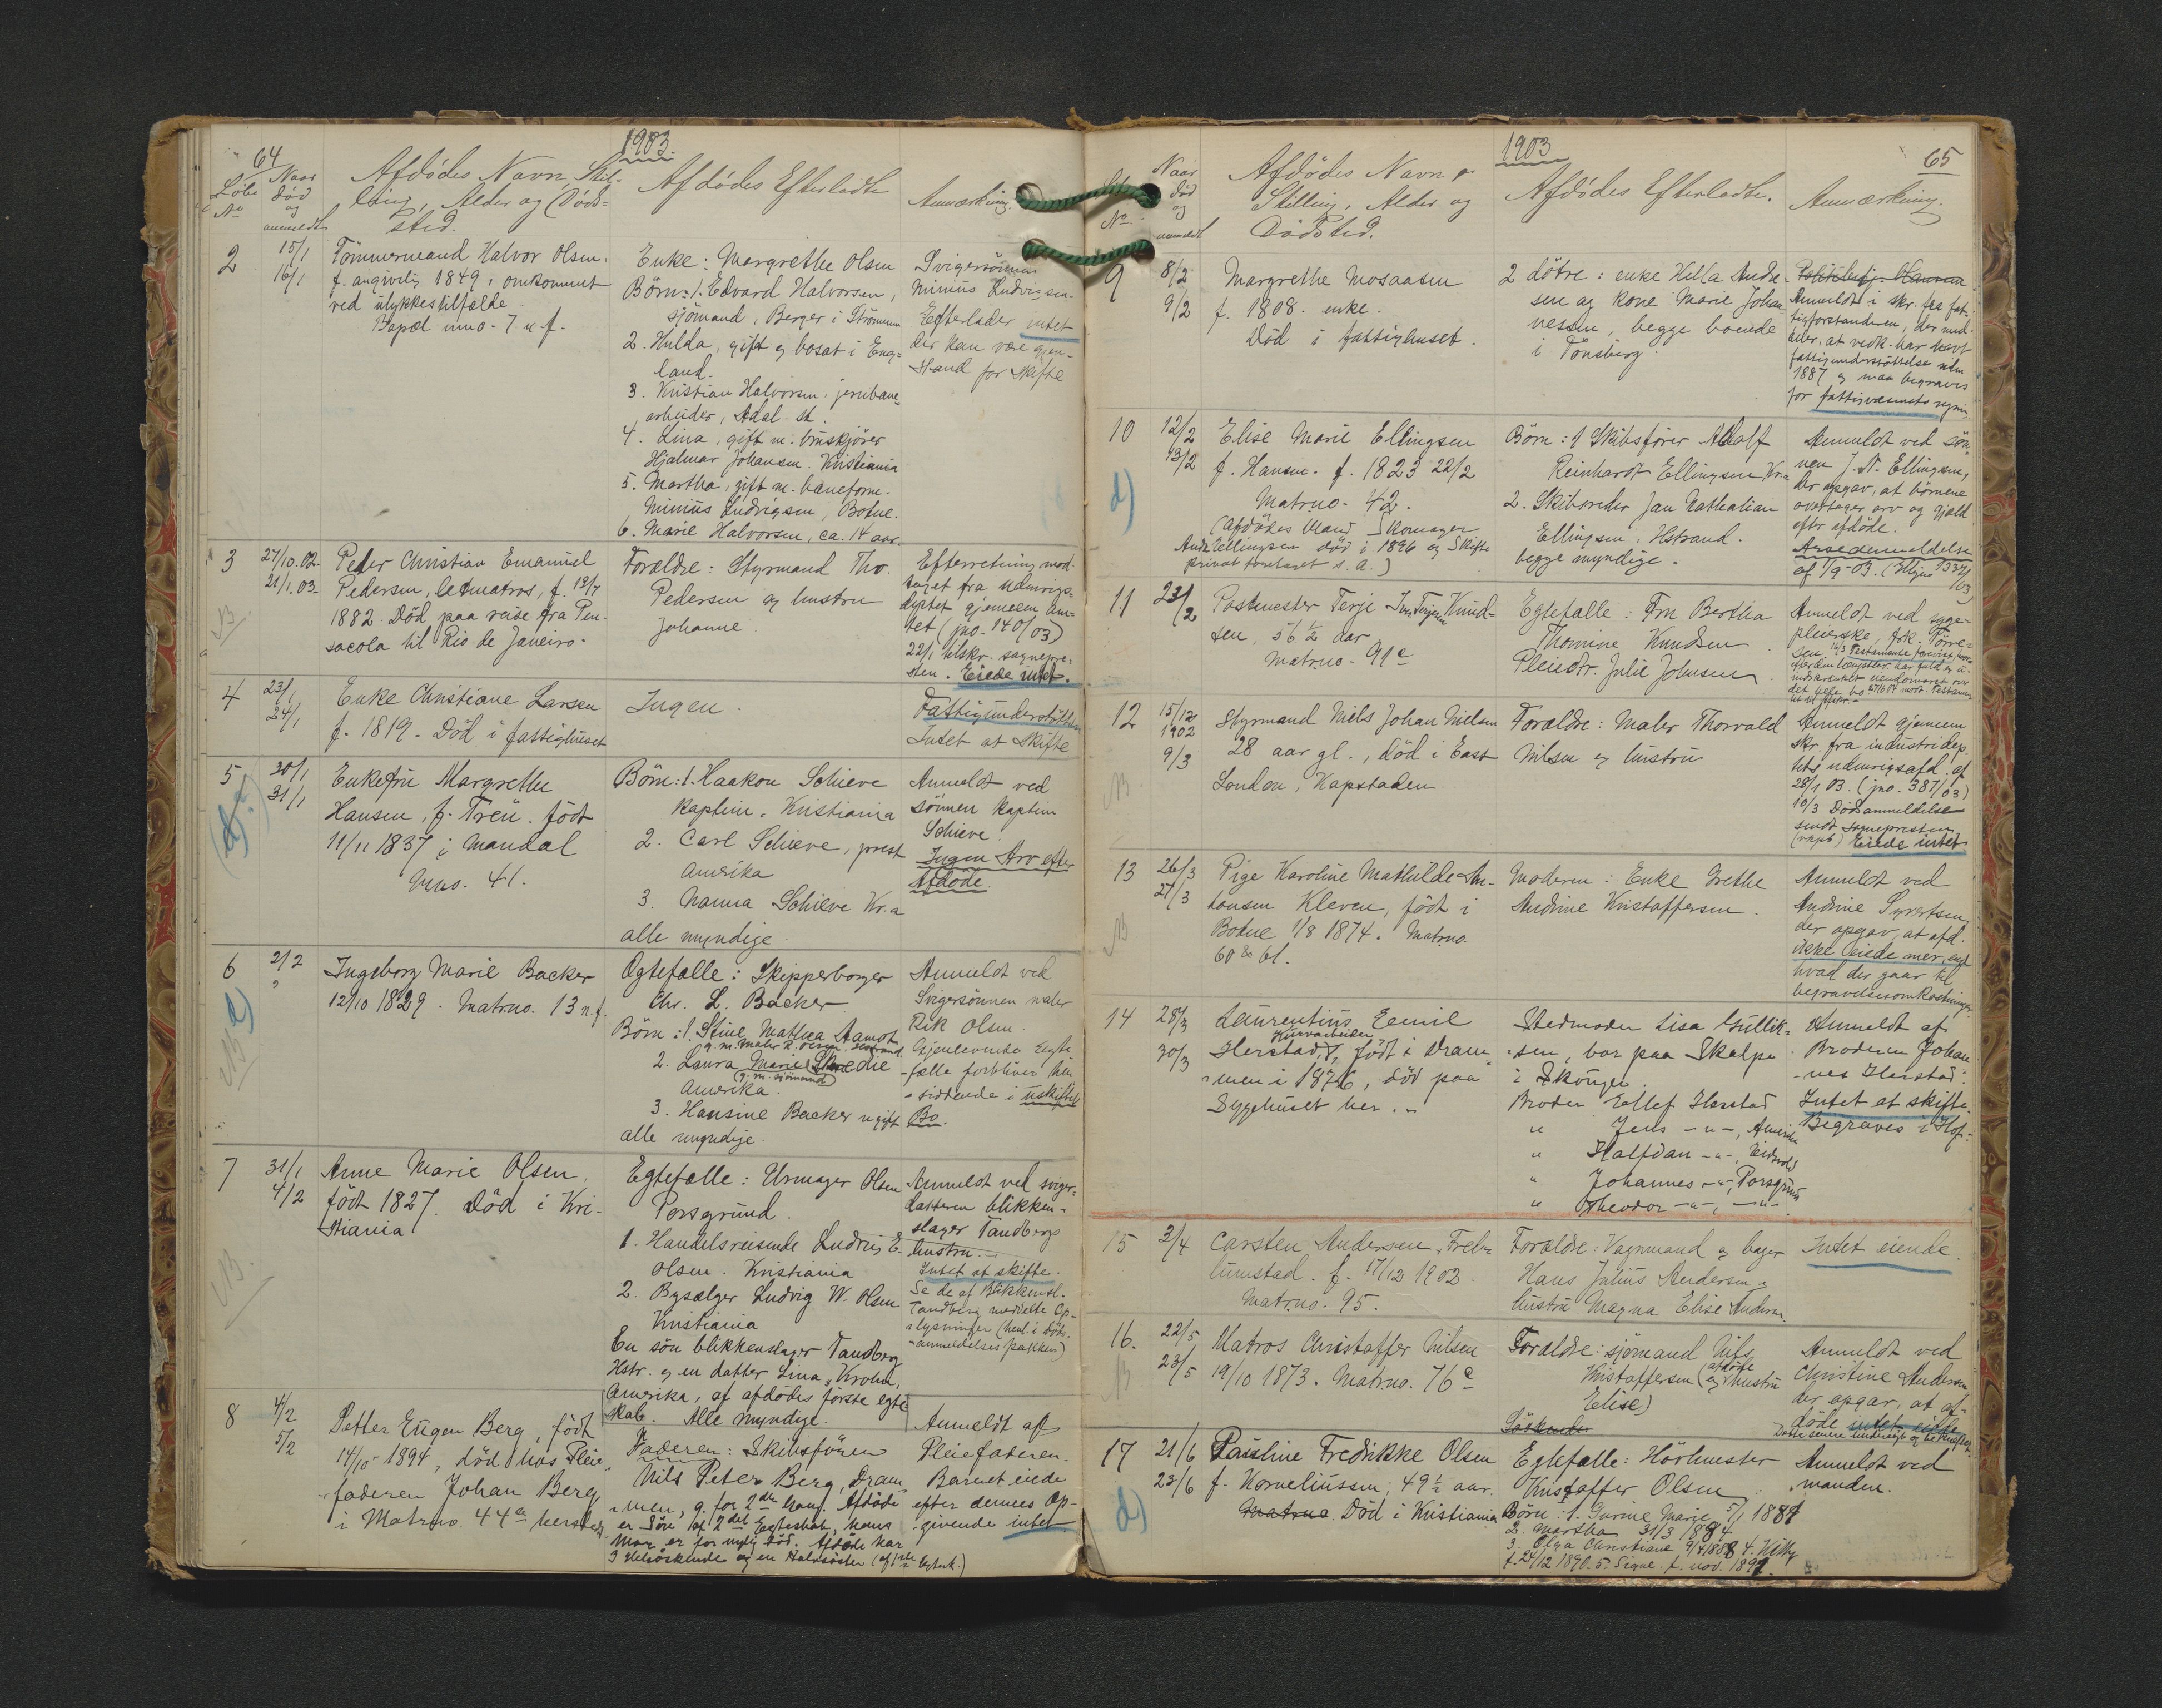 64
1903.
Löbe No
Naar död og anmeldt
Afdödes Navn, Stil-
ling, Alder og Döds-
sted.
Afdödes Efterladte
Anmærkning.
2
15/1
16/1
Tömmermand Halvor Olsen.
f. angivelig 1849, omkommet
ved ulykkestilfælde
Bapæl mno. 7 u f.
Enke: Margrethe Olsen
Börn: 1. Edvard Halvorsen,
sjömand, Berger i Strömmen
2. Hulda, gift og bosat i Eng-
land.
3. Kristian Halvorsen, jernbane-
arbeider, Adal st.
4. Lina, gift m.
Hjalmar Johansen. Kristiania
5. Martha, gift m. baneform.
Minius Ludvigsen, Botne.
6. Marie Halvorsen, ca. 14 aar.
Svigersönnen
Minius Ludvigsen.
Efterlader intet
der kan være gjen-
stand for skifte
3
27/10.02.
21/1.03.
NB.
Peder Christian Emanuel
Pedersen, letmatros, f. 13/7
1882. Död paa reise fra Pen-
sacola til Rio de Janeiro.
Forældre: Styrmand Tho.
Pedersen og hustru
Johanne.
Efterretning mod-
taget fra Udenrigs-
deptet gjennem Am-
tet (jno. 140/03)
22/1 tilskr. sognepre-
sten. Eiede intet.
4
23/1
24/1
Enke Christiane Larsen
f. 1819. Död i fattighuset
Ingen.
Fattigunderstöttelse
Intet at skifte
5
30/1
31/1
Enkefru Margrethe
Hansen, f. Treü. födt
11/11 1837 i Mandal
Mno. 41.
Börn: 1. Haakon Schieve
Kaptein, Kristiania
2. Carl Schieve, prest
Amerika
3. Nanna Schieve Kr.a
alle myndige.
Anmeldt ved
sönnen Kaptein
Schieve.
Ingen Arv efter
Afdöde.
6
2/2
"
Ingeborg Marie Backer
12/10 1829. Matrno. 13 n.f.
Ægtefælle: Skipperborger
Chr. L. Backer
Börn: 1. Stine Mathea Aamot
g. m. Maler R. Olsen Hstrand.
2. Laura Marie
(g. m. sjömand)
Amerika.
3. Hansine Backer ugift
alle myndige.
Anmeldt ved
Svigersönnen maler
Rik Olsen.
Gjenlevende Ægte-
fælle forbliver hen-
siddende i uskiftet
Bo.
7
31/1
4/2
NB.
Anne Marie Olsen,
födt 1827. Död i Kri-
stiania
Egtefælle: Urmager Olsen
Porsgrund.
1. Handelsreisende Ludvig E.
Olsen. Kristiania
2. Bysælger Ludvig W. Olsen
Kristiania
En sön blikkenslager Tandberg
Hstr. og en datter Lina Krohn,
Amerika, af afdödes förste egte-
skab. Alle myndige.
Anmeldt ved sviger-
datteren blikken-
slager Tandbergs
hustru.
Intet at skifte.
Se de af Blikkensl.
Tandberg meddelte Op-
lysninger (henl. i Döds-
anmeldelsespakken)
8
4/2
5/2
Petter Eugen Berg, födt
14/10 1894, död hos Pleie-
faderen Johan Berg
i Matrno. 44a hersteds
Faderen: Skibsföreren
Nils Peter Berg, Dram-
men, g. for 2den Gang. Afdöde
er Sön af 2det Egteskab, hans
Mor er for nylig död. Afdöde har
3 Helsöskende og en Halvsöster (af 1ste Egtesk.)
Anmeldt af
Pleiefaderen.
Barnet eiede
efter dennes Op-
givende intet
65
1903
No
Naar död og anmeldt
Afdödes Navn &
Stilling, Alder og
Dödsted.
Afdödes Efterladte.
Anmærkning.
9
8/2
9/2
Margrethe Mosaasen
f. 1808. enke.
Död i fattighuset.
2 dötre: enke Hella Andre-
sen og kone Marie Johan-
nessen, begge boende
i Tönsberg.
Anmeldt i skr. fra fat-
tigforstanderen, der med-
deler, at vedk. har havt
fattigunderstöttelse siden
1887 og maa begraves
for fattigvæsenets regning
10
12/2
13/2
d)
Elise Marie Ellingsen
f. Hansen. f. 1823 22/2
Matrno. 42.
(Afdödes Mand Skomager
Ands Ellingsen död i 1896 og Skifte
privat foretaget s. A.)
Börn: 1 Skibsförer Adolf
Reinhardt Ellingsen, Kr.a
2. Skibsreder Jan Nathalian
Ellingsen, Hstrand.
begge myndige.
Anmeldt ved sön-
nen J. N. Ellingsen,
der opgav, at börnene
overtager arv og gjæld
efter afdöde.
Arveanmeldelse
af 1/9-03. (Mjno 1332/03)
11
23/2
Postmester Terje Terjesen Knud-
sen, 56 ½ aar
Matrno. 91c
Egtefælle: Fru Bertha
Thomine Knudsen
Pleiedtr. Julie Johnsen
Anmeldt ved syge-
pleierske, frk. Törre-
sen
12
15/12
1902
9/3
NB
Styrmand Niels Johan Nielsen
28 aar gl., död i East
London, Kapstaden
Forældre: Maler Thorvald
Nilsen og hustru
Anmeldt gjennem
skr. fra industridep-
tets udenrigsafd. af
28/1 03. (jno. 387/03)
10/3 Dödsanmeldelse
sendt sognepresten
Eiede intet
13
26/3
27/3
NB
Pige Karoline Mathilde An-
tonsen Kleven, födt i
Botne 1/8 1874. Matrno.
60 & 61.
Moderen: Enke Grethe
Andrine Kristoffersen.
Anmeldt ved
Andrine Syvertsen,
der opgav, at afd.
ikke eiede mer, end
hvad der gaar til
begravelsesomkostninger
14
28/3
30/3
Laurentius Eemil
Kurvarbeider
Herstad, födt i Dram-
men i 1876, död paa
Sygehuset her.
Stedmoder Lisa Gullik-
sen, bor paa Skalpe
i Skouger.
Broder Ellef Herstad
" Jens -"-, Amerika
" Halfdan -"-, Eidsvold
" Johannes -"-, Porsgrund
" Theodor -"-, -"-
Anmeldt af
Broderen Johan-
nes Herstad.
Intet at skifte.
Begraves i Hof.
15
3/4
Carsten Andersen, Freb-
lumstad. f. 17/12 1902.
Matrno. 95.
Forældre: Vognmand og bager
Hans Julius Andersen og
hustru Magna Elise Andersen.
Intet eiende.
16.
22/5
23/5
Matros Christoffer Nilsen
19/10 1873. Matrno. 76c
Forældre: sjömand Nils
Kristoffersen (og afdöde hustru
Elise)
Söskende
Anmeldt ved
Christine Andersen
der opgav, at af-
döde intet eiede
17
21/6
23/6
d)
Pauline Fredrikke Olsen
f. Korneliussen, 49 ½ aar.
Matrno. Död i Kristiania
Egtefælle: Havnemester
Kristoffer Olsen
Börn: 1. Gurine Marie 5/1 1881
2. Martha 31/3 1884
3. Olga Christiane 9/4 1888 4. Willy
f. 24/12 1890. 5. Signe f. nov. 1892.
Anmeldt ved
manden.